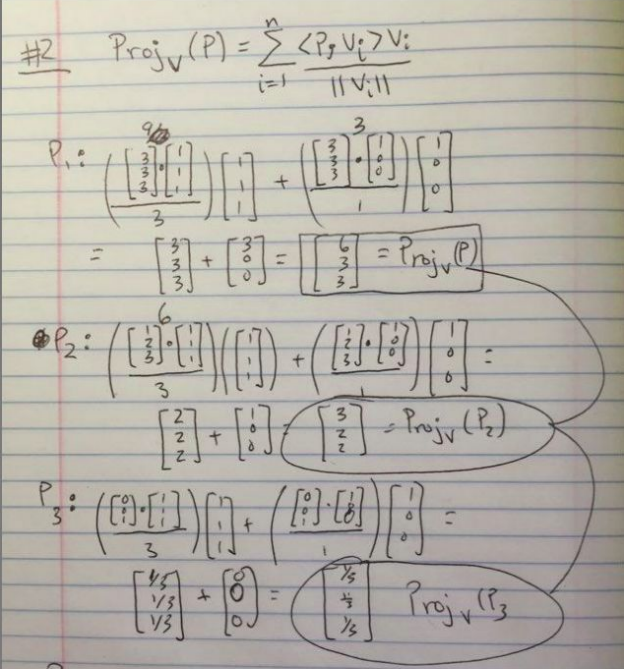 #2 Proj_V (P) = n Σ i=1 <P, V_i> V_i / ||V_i||
9 3
P_1: ([3 3 3] · [1 1 1] / 3) [1 1 1] + ([3 3 3] · [1 0 0] / 1) [1 0 0]
= [3 3 3] + [3 0 0] = [6 3 3] = Proj_V (P)
6
P_2: ([1 2 3] · [1 1 1] / 3) ([1 1 1]) + ([1 2 3] · [1 0 0] / 1) [1 0 0] =
[2 2 2] + [1 0 0] = [3 2 2] = Proj_V (P_2)
P_3: ([0 0 1] · [1 1 1] / 3) [1 1 1] + ([0 0 1] · [1 0 0] / 1) [1 0 0] =
[1/3 1/3 1/3] + [0 0 0] = [1/3 1/3 1/3] Proj_V (P_3